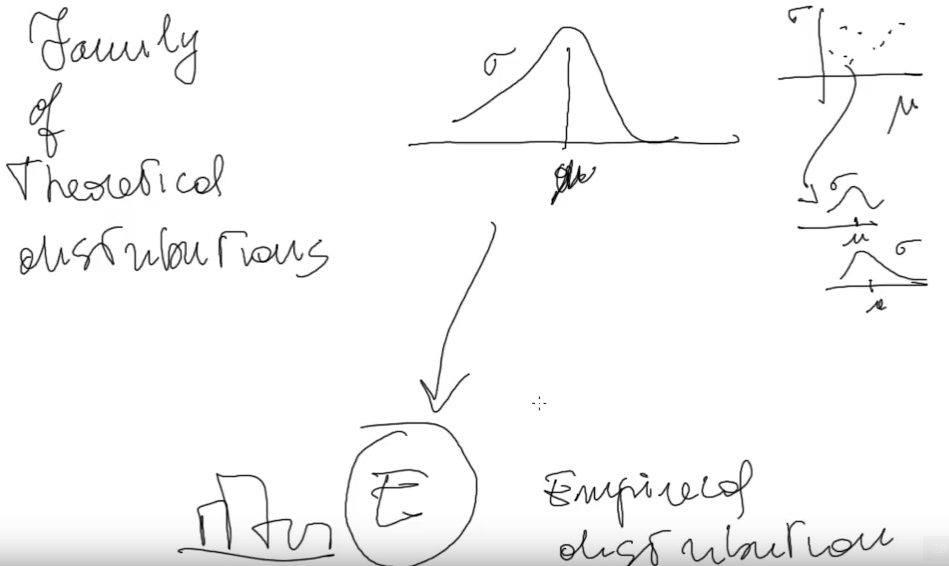 Family
of
Theoretical
distributions
σ
μ
σ
μ
σ
μ
σ
μ
E
Empirical
distribution